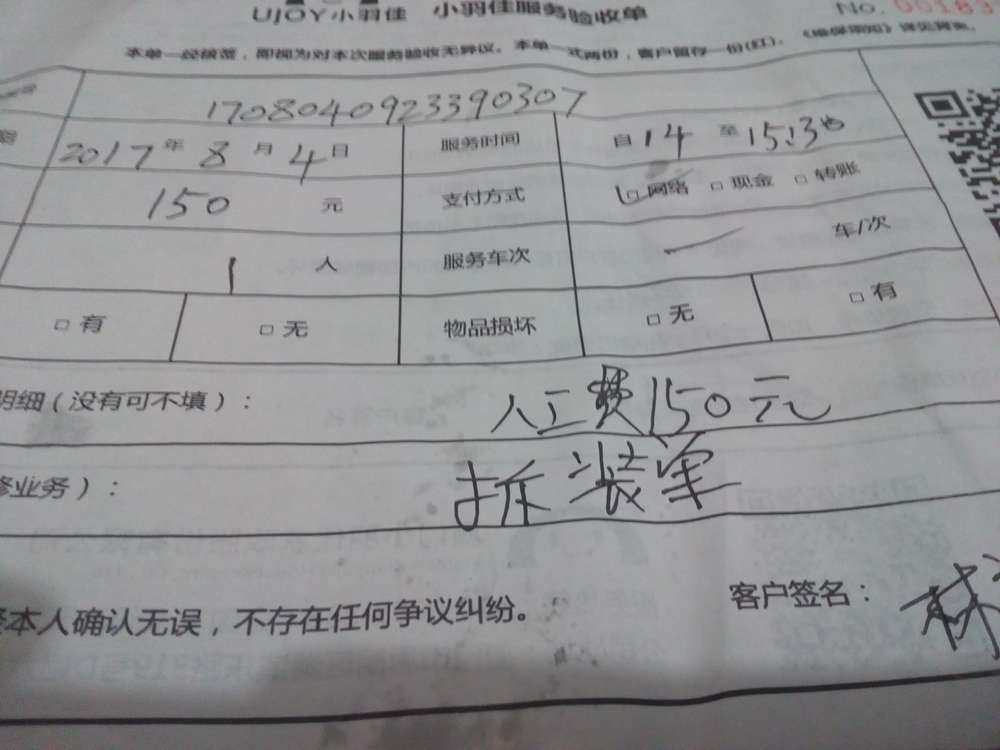 UJOY小羽佳 小羽佳服务验收单
No.
本单一经核签，即视为对本次服务验收无异议。本单一式两份，客户留存一份(红)。
1708040923390307
2017年8月4日 服务时间 自14至15:30
150元 支付方式 □网络 □现金 □转账
1人 服务车次 车/次
□有 □无 物品损坏 □无 □有
明细（没有可不填）： 人工费150元
修业务）： 拆装
本人确认无误，不存在任何争议纠纷。 客户签名： 林